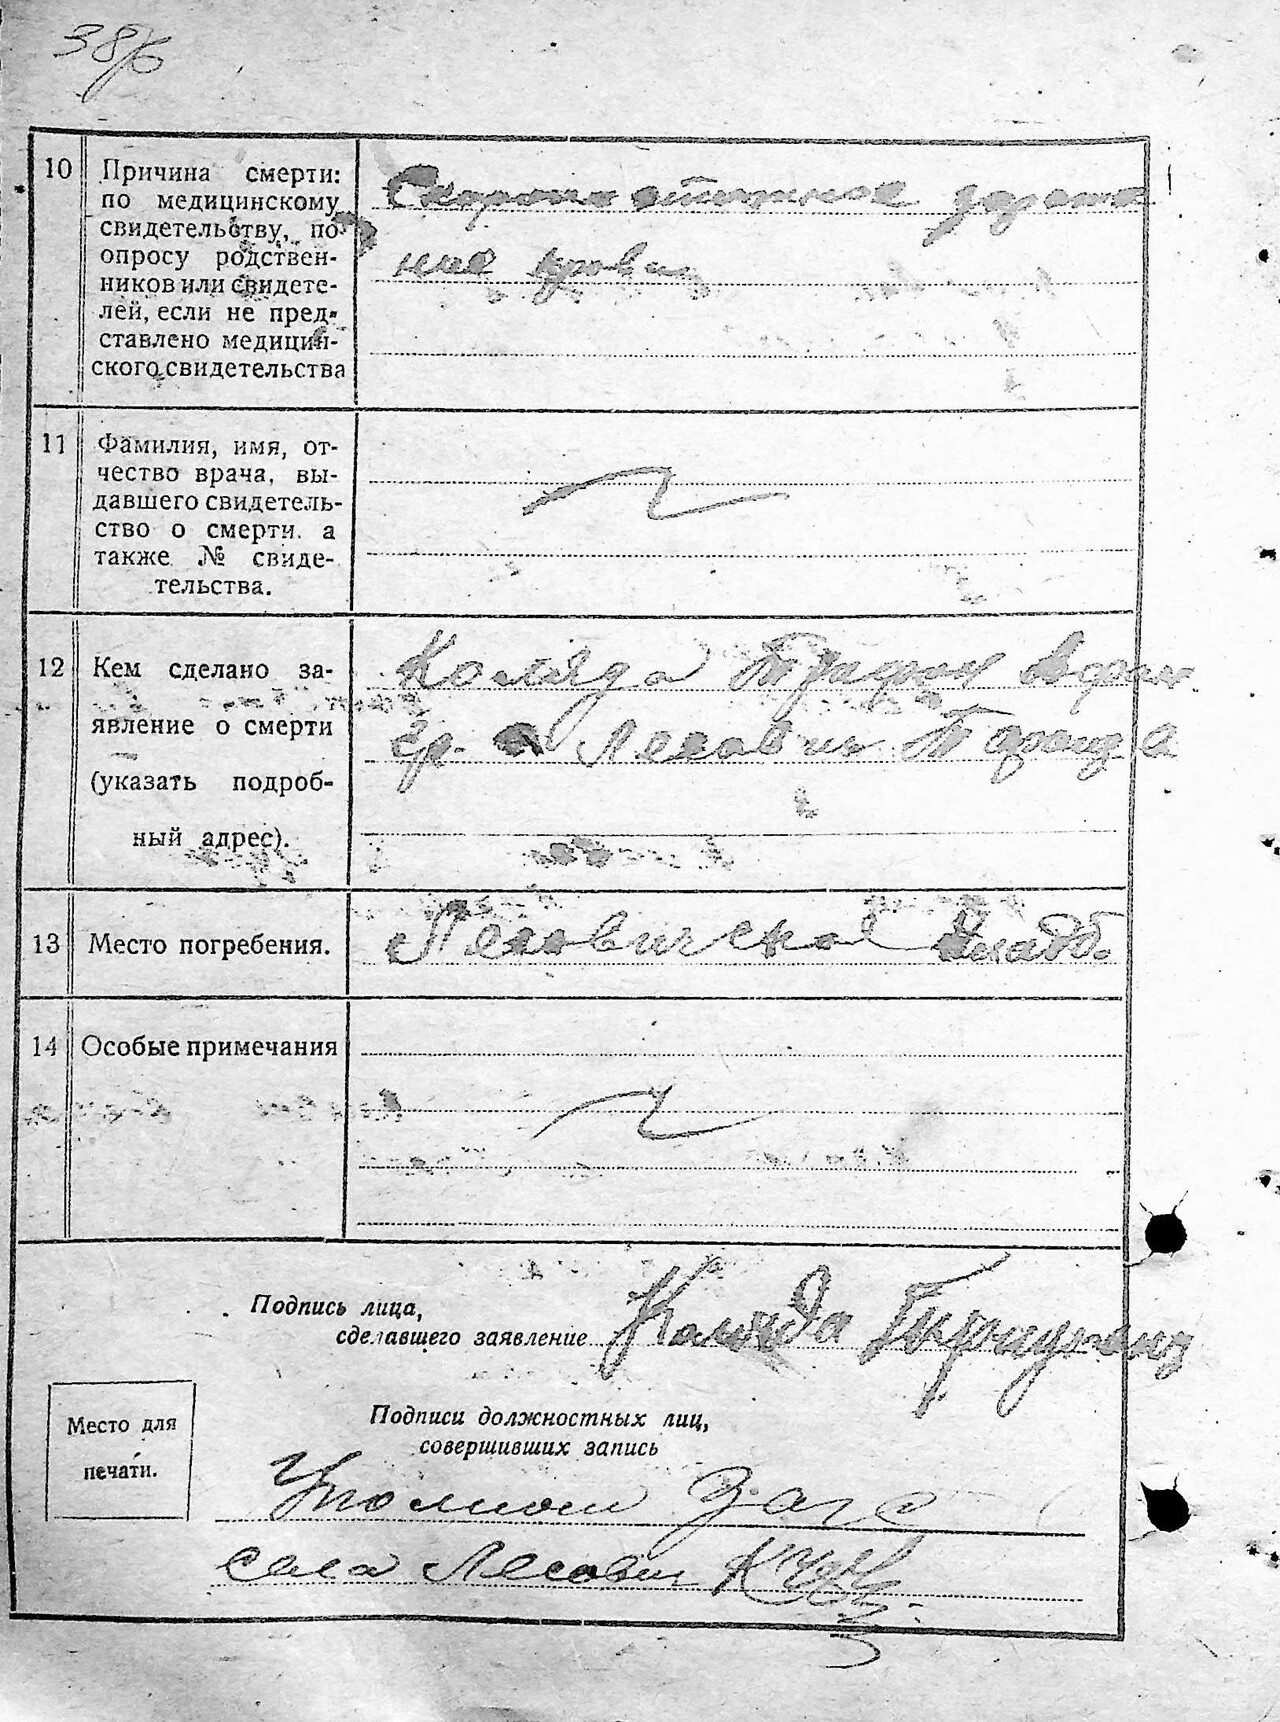 38/б
10 Причина смерти:
по медицинскому
свидетельству, по
опросу родствен-
ников или свидете-
лей, если не пред-
ставлено медицин-
ского свидетельства
Скоропостижное зараже
ние крови
11 Фамилия, имя, от-
чество врача, вы-
давшего свидетель-
ство о смерти, а
также № свиде-
тельства.
12 Кем сделано за-
явление о смерти
(указать подроб-
ный адрес).
Коляда
гр. Лесовичи
13 Место погребения.
Лесовичское кладб.
14 Особые примечания
Подпись лица,
сделавшего заявление Коляда
Место для
печати.
Подписи должностных лиц,
совершивших запись
Загс
села Лесович